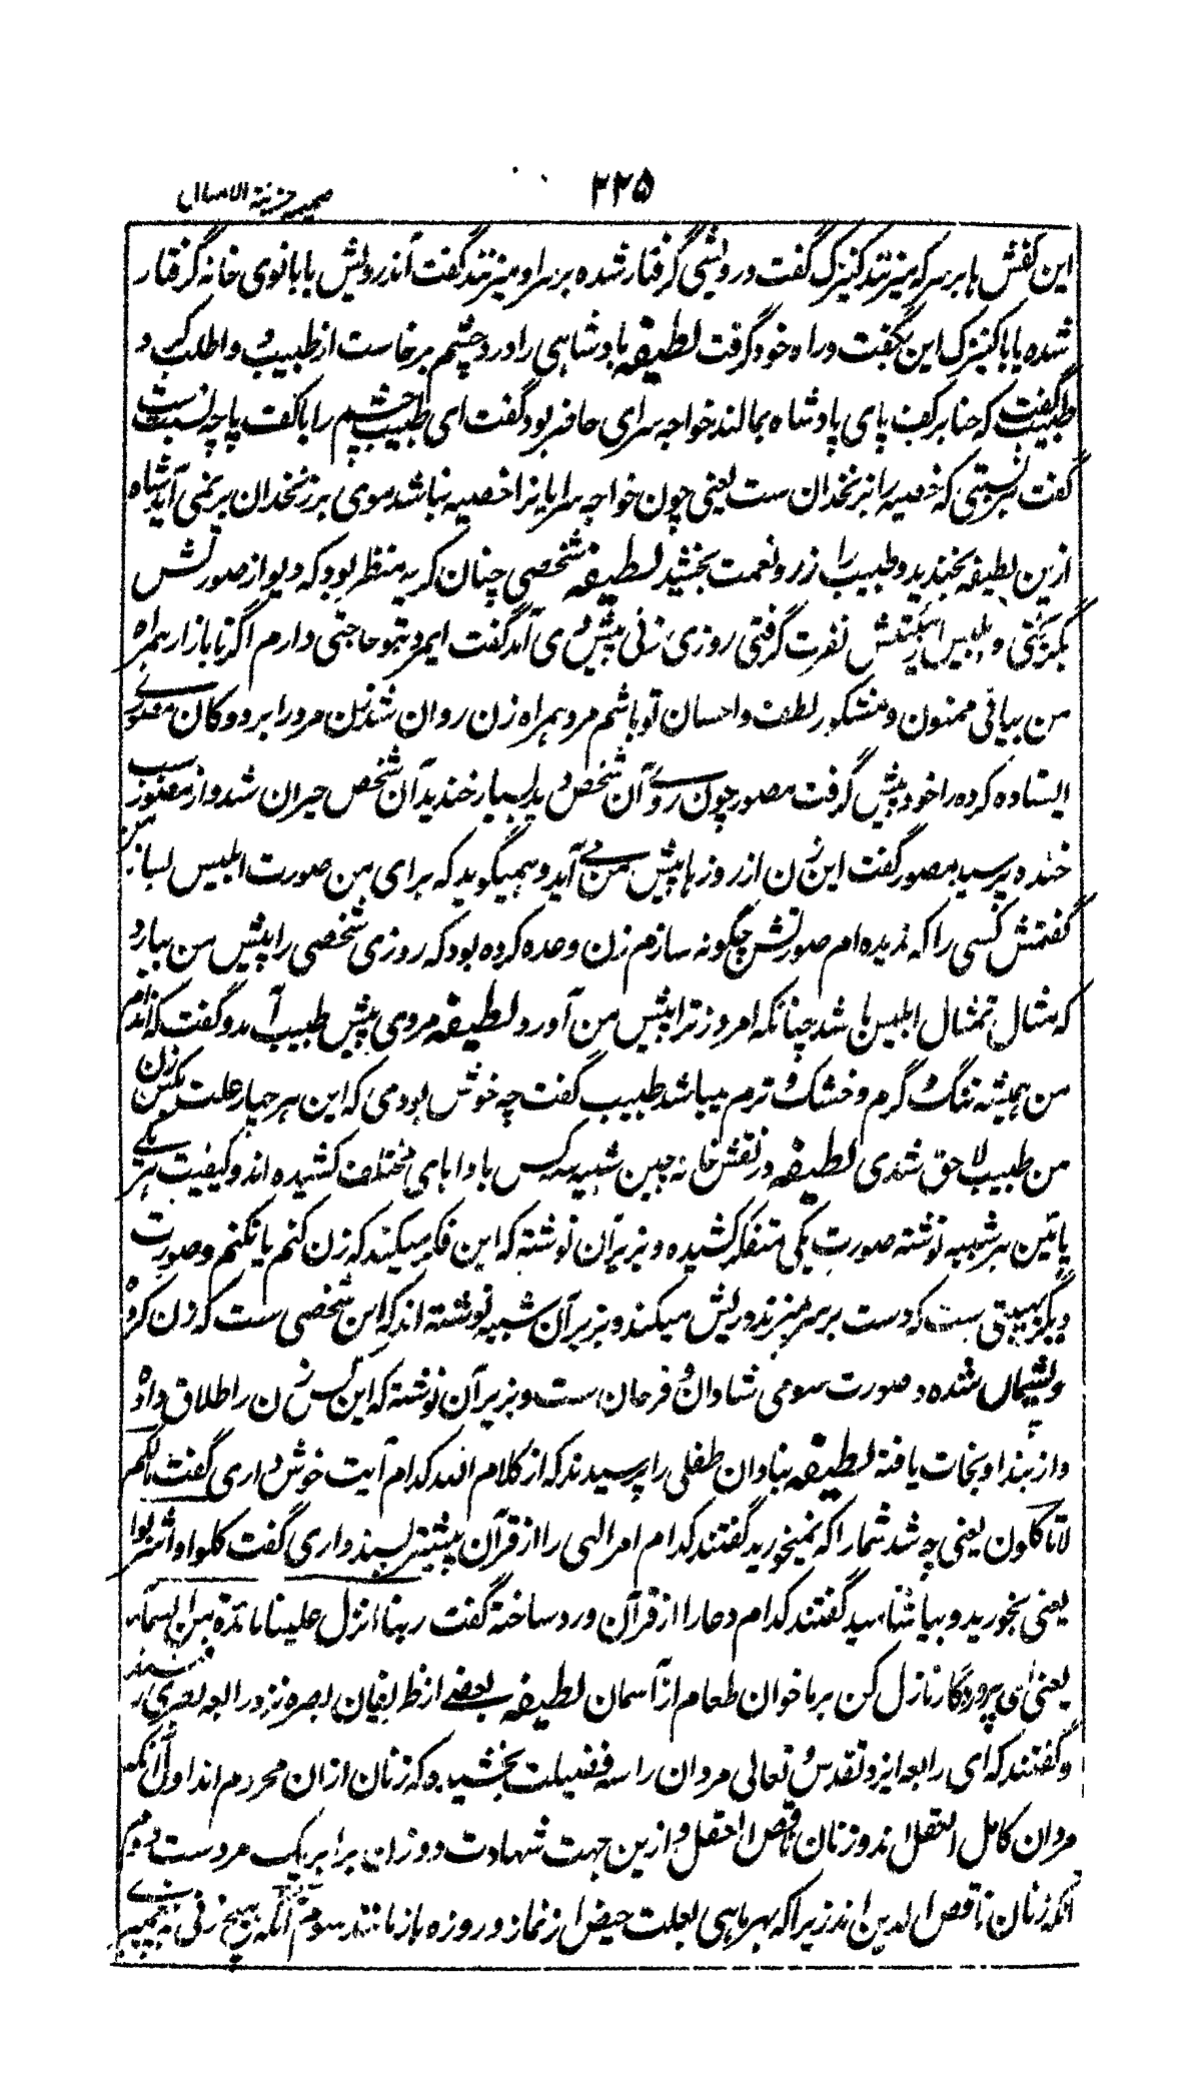 ۲۲۵
ضمیمه خزینة الامثال
این کفش ها بر سر که میزنند کنیزک گفت درویشی گرفتار شده بر سر او میزنند گفت آن درویش با بانوی خانه گرفتار
شده یا با کنیزک این بگفت و راه خود گرفت لطیفه پادشاهی را درد چشم برخاست از طبیب دوا طلب کرد
طبیب گفت که حنا بر کف پای پادشاه بمالند خواجه سرای حاضر بود گفت ای طبیب چشم را با کف پا چه نسبت ست
گفت نسبتی که خصیه را بزنخدان ست یعنی چون خواجه سرایانرا خصیه نباشد موی بر زنخدان بر نمی آید پادشاه
ازین لطیفه بخندید و طبیب را زر و نعمت بخشید لطیفه شخصی چنان کریه منظر بود که دیو از صورتش
بگریختی و ابلیس از نفرت گرفتی روزی زنی پیش وی آمد گفت ایمرد بتو حاجتی دارم اگر تا بازار همراه
من بیائی ممنون و مشکور لطف و احسان تو باشم مرد همراه زن روان شد زن مرد را بر دوکان مصوری
ایستاده کرده راه خود پیش گرفت مصور چون روی آن شخص دید بسیار خندید آن شخص حیران شد و از مصور سبب
خنده پرسید مصور گفت این زن از روزها پیش من می آید و همیگوید که برای من صورت ابلیس بساز من
گفتمش کسی را که ندیده ام صورتش چگونه سازم زن وعده کرده بود که روزی شخصی را پیش من بیارد
که مثال تمثال ابلیس باشد چنانکه امروز ترا پیش من آورد لطیفه مردی پیش طبیب آمد و گفت که اندام زن
من همیشه تنگ و گرم و خشک و ترم میباشد طبیب گفت چه خوش بودمی که این هر چهار علت بکس زن
من طبیب لاحق شدی لطیفه در نقش خانه چین شبیه سه کس با داباهی مختلف کشیده اند و کیفیت هر یکی
پائین هر شبیه نوشته صورت یکی متفکر کشیده و زیر آن نوشته که این فکر میکند که زن کنم یا نکنم و صورت
دیگر بهیئتی ست که دست بر سر میزند و ریش میکند و زیر آن شبیه نوشته اند که این شخصی ست که زن کرده
و پشیمان شده و صورت سومی شادان و فرحان ست و زیر آن نوشته که این کس زن را طلاق داده
و از بند او نجات یافته لطیفه بنادان طفلی را پرسیدند که از کلام الله کدام آیت خوش داری گفت مالکم
لا تاکلون یعنی چه شد شما را که نمیخورید گفتند کدام امر الهی را از قرآن پیشتر پسند داری گفت کلوا واشربوا
یعنی بخورید و بیاشامید گفتند کدام دعا را از قرآن ورد ساخته گفت ربنا انزل علینا مائدة من السماء
یعنی ای پروردگار نازل کن بر ما خوان طعام از آسمان لطیفه بعضے از ظریفان بصره نزد رابعه بصری رفتند
و گفتند که ای رابعه ایزد تقدس و تعالی مردان را سه فضیلت بخشیده که زنان ازان محروم اند اول آنکه
مردان کامل العقل اند و زنان ناقص العقل و ازین جهت شهادت دو زن برابر یک مرد ست دوم
آنکه زنان ناقص الدین اند زیرا که بهر ماهی بعلت حیض از نماز و روزه باز مانند سوم آنکه هیچ زنی به پیغمبری